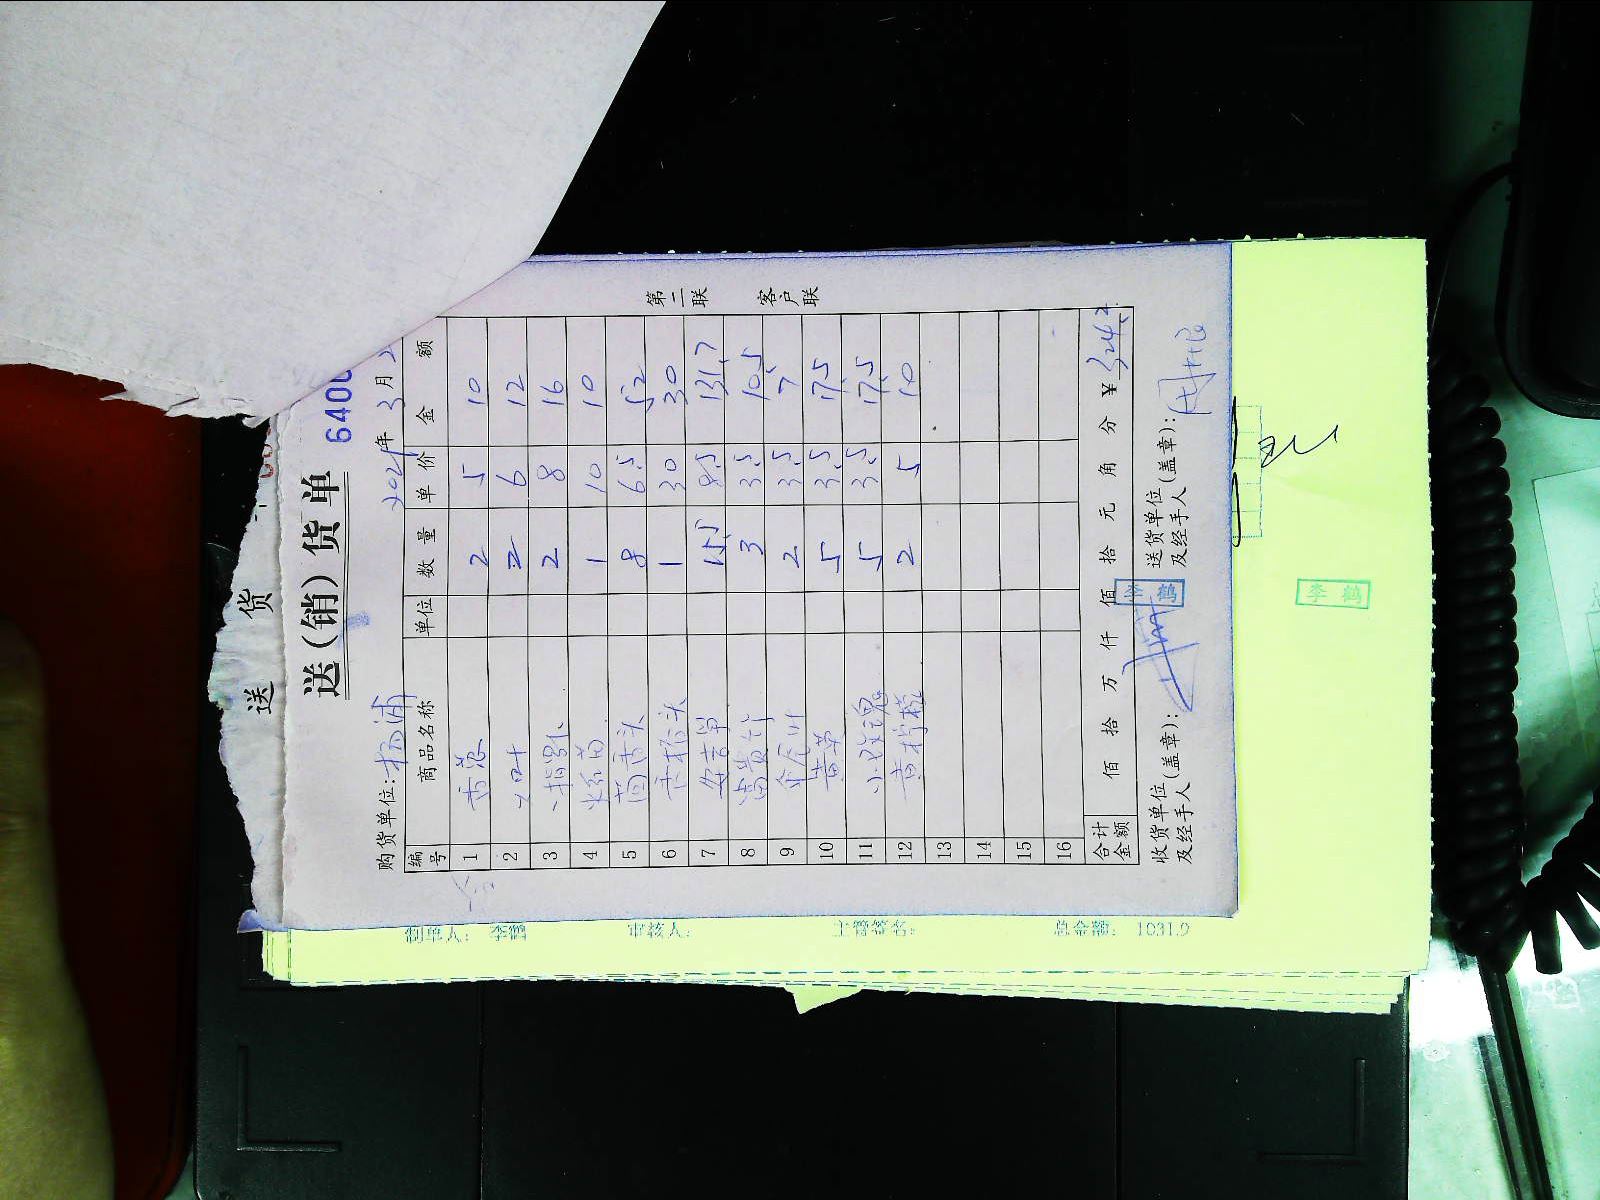 送 货
送(销)货单
6400
购货单位: 杨浦 2021年 3月 2
编号 商品名称 单位 数量 单价 金额
1 香葱 2 5 10
2 2 6 12
3 2 8 16
4 1 10 10
5 茴香头 8 6.5 52
6 1 30 30
7 15.5 8.5 131.7
8 富贵竹 3 3.5 10.5
9 2 3.5 7
10 黄英 5 3.5 17.5
11 小玫瑰 5 3.5 17.5
12 黄柠檬 2 5 10
13
14
15
16
合计金额 佰 拾 万 仟 佰 拾 元 角 分 ¥ 324.2
收货单位(盖章):
及经手人
送货单位(盖章):
及经手人
第二联 客户联
李鹤
制单人: 李鹤 审核人: 主管签名: 总金额: 1031.9
李鹤